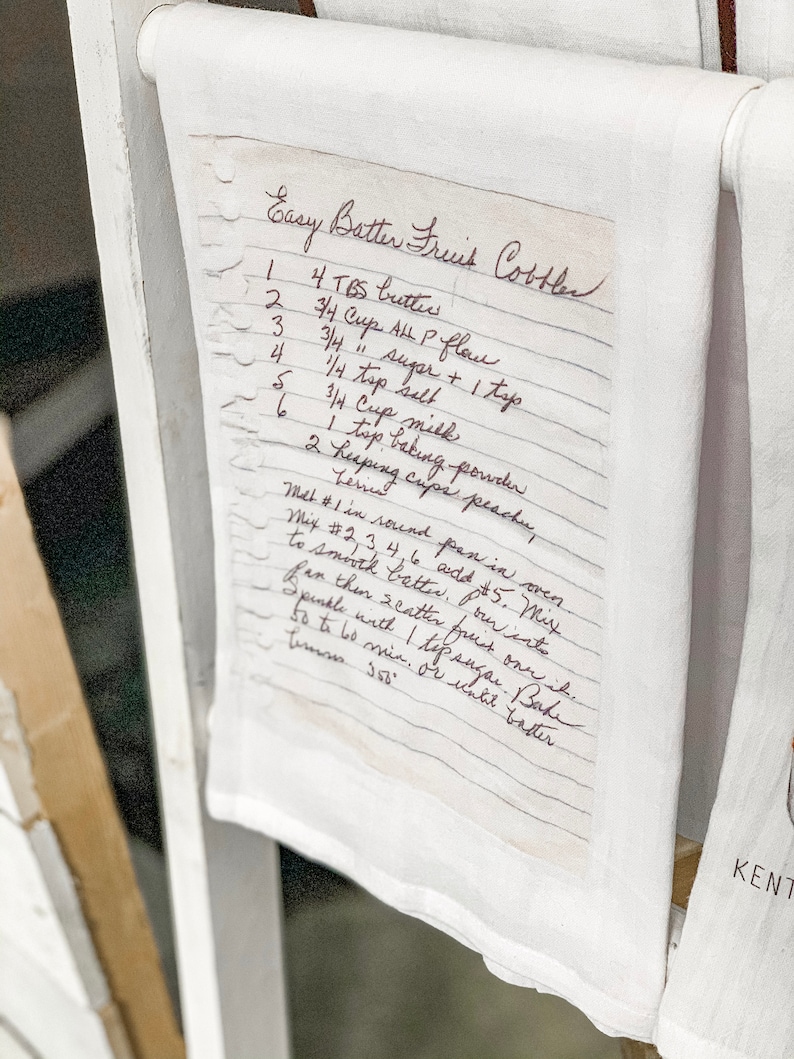 Easy Batter Fruit Cobbler
1 4 TBS butter
2 3/4 Cup All P flour
3 3/4 " sugar + 1 tsp
4 1/4 tsp salt
5 3/4 Cup milk
6 1 tsp baking powder
2 heaping cups peaches,
berries
Melt #1 in round pan in oven
Mix #2, 3, 4, 6 add #5. Mix
to smooth batter. Pour into
Pan then scatter fruit over it.
Sprinkle with 1 tsp sugar. Bake
50 to 60 min. or until batter
browns 350°
KENT